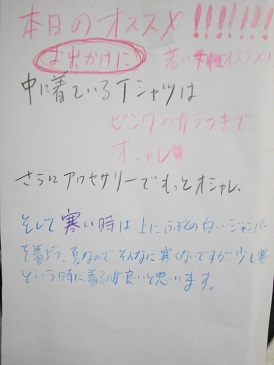 本日のオススメ!!!!!!!
お出かけに 若い オススメ!
中に着ているTシャツは
ピンクのガラつきで
オシャレ!!
さらにアクセサリーでもっとオシャレ。
そして寒い時は上に の白いジャンパー
を着よう。夏なのでそんなに寒くないですが、少し寒
という時に着るのが良いと思います。